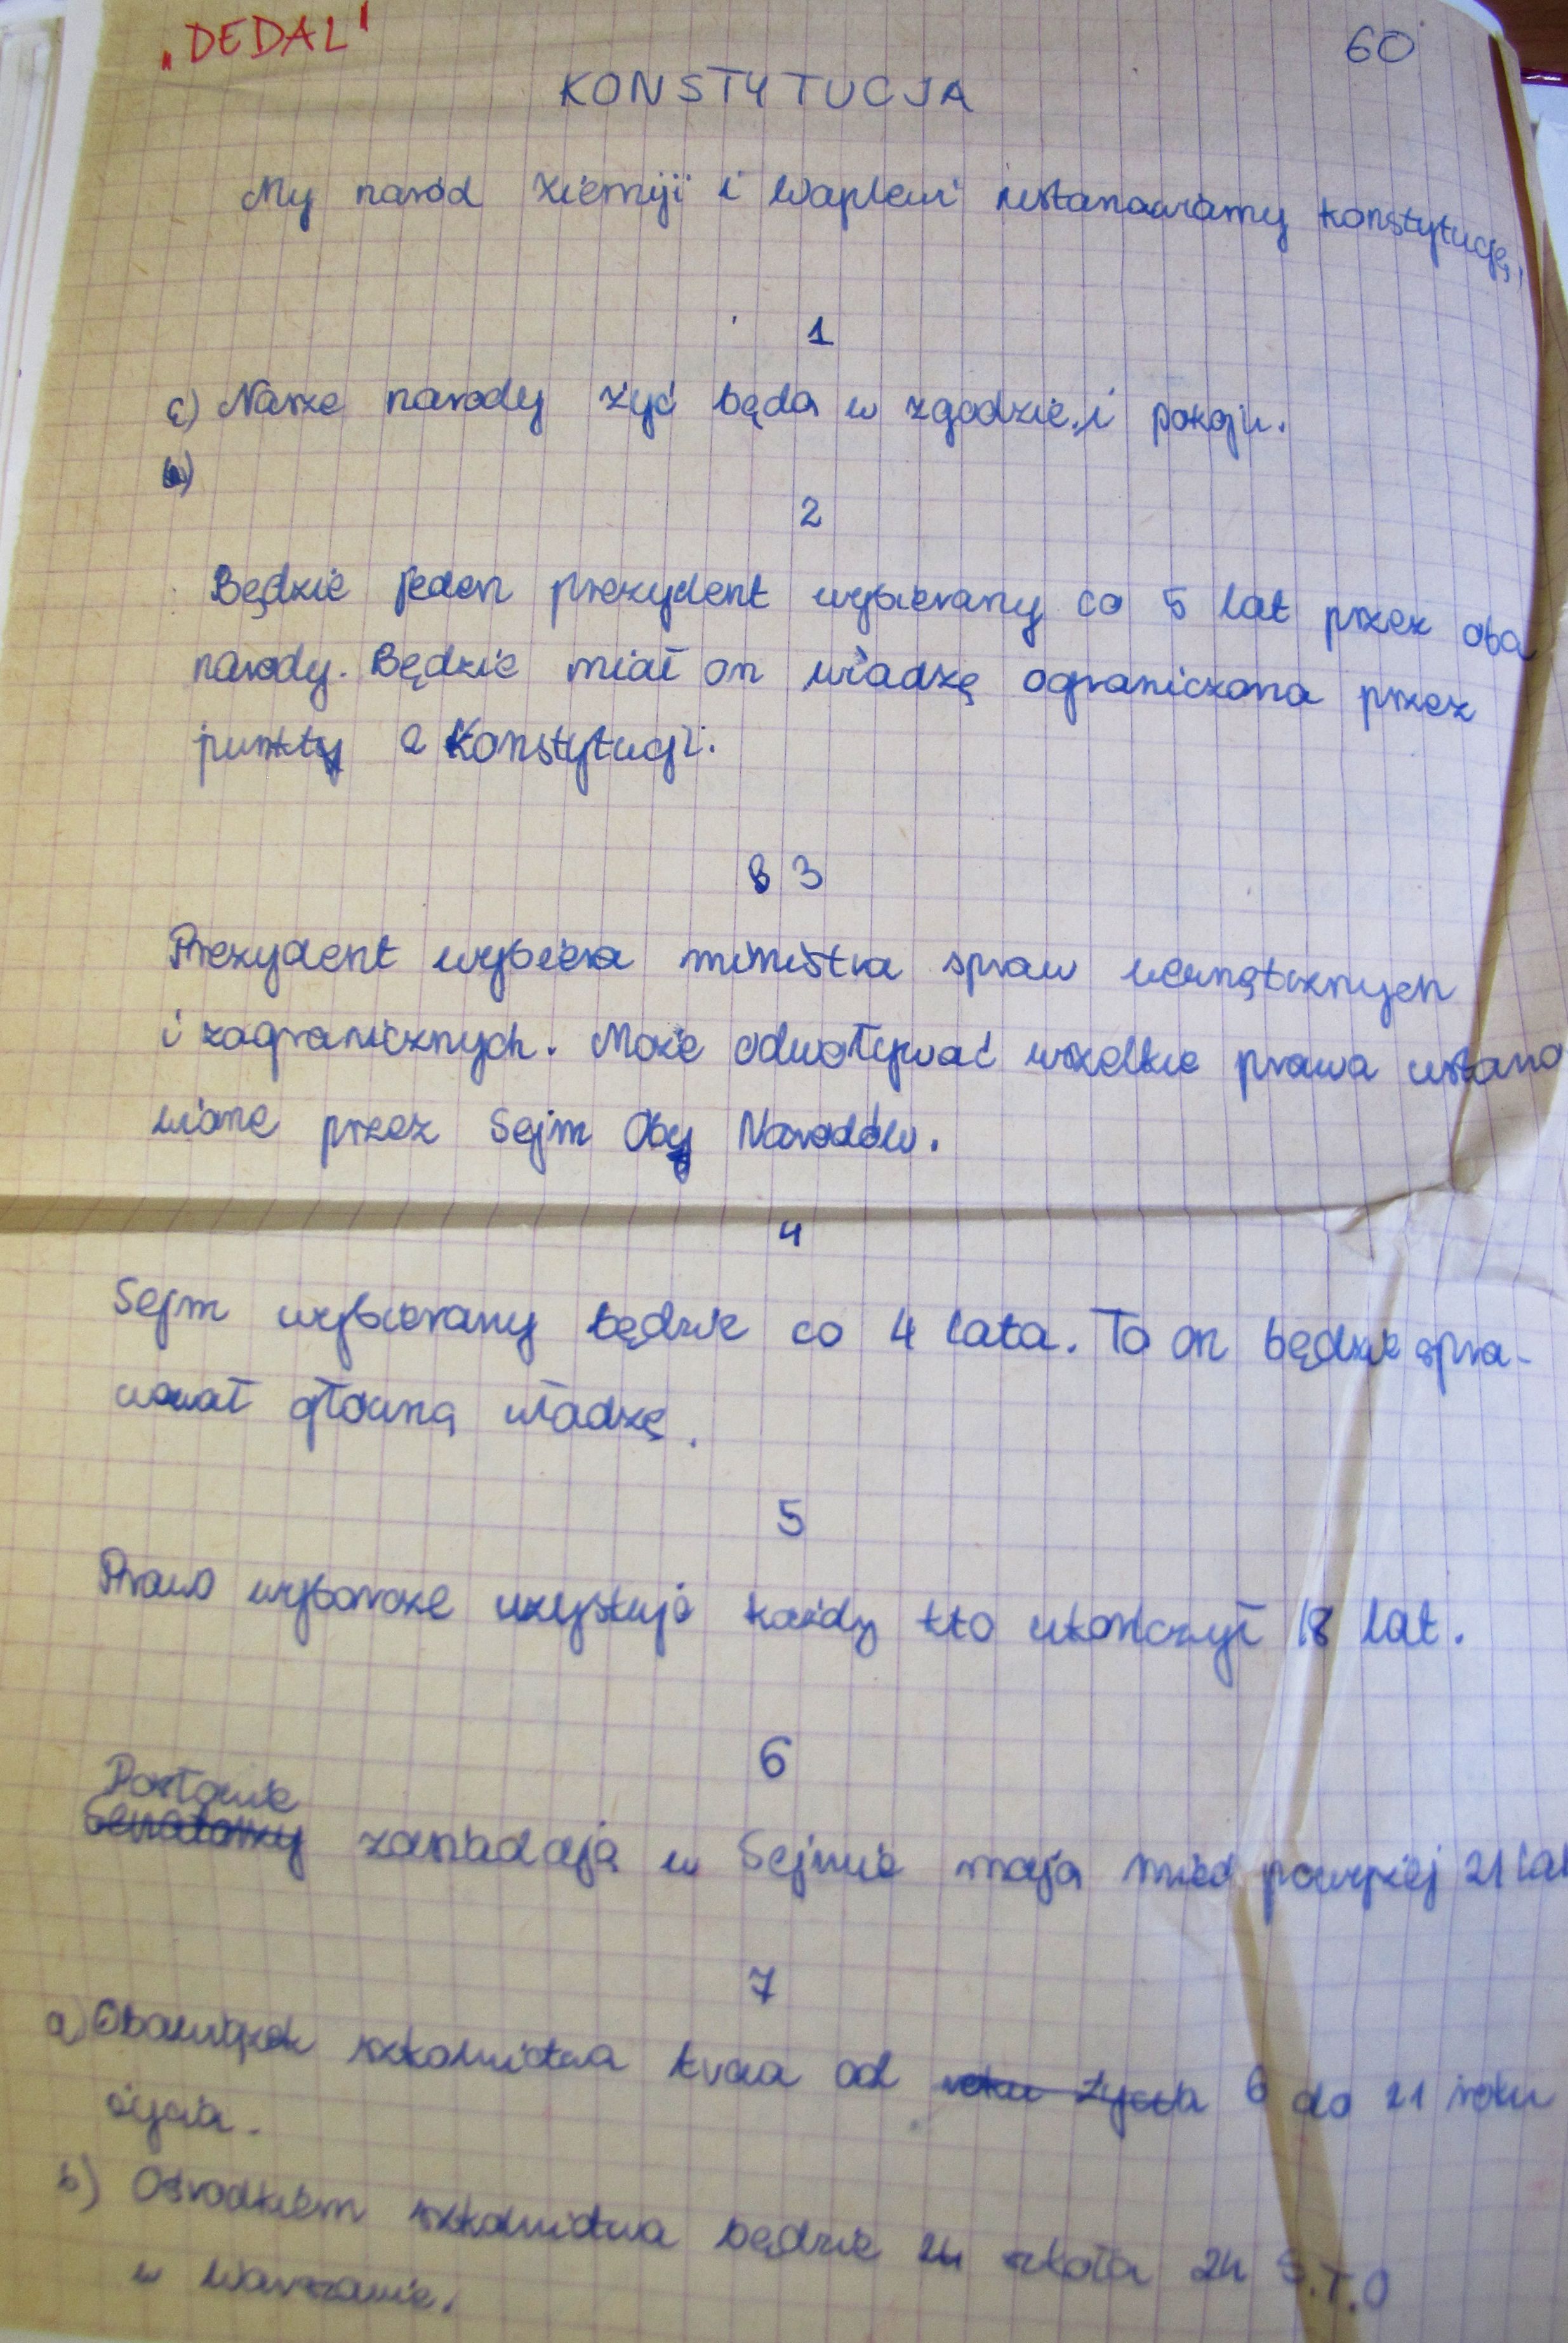 „DEDAL"
60
KONSTYTUCJA
My naród Ziemiji i Waplewi ustanawiamy konstytucję,
1
a) Nasze narody żyć będą w zgodzie i pokoju.
b)
2
Będzie jeden prezydent wybierany co 5 lat przez oba
narody. Będzie miał on władzę ograniczoną przez
punkty Konstytucji.
3
Prezydent wybiera ministra spraw wewnętrznych
i zagranicznych. Może odwoływać wszelkie prawa ustano
wione przez Sejm Oby Narodów.
4
Sejm wybierany będzie co 4 lata. To on będzie spra-
wował główną władzę.
5
Prawo wyborcze uzyskuje każdy kto ukończył 18 lat.
6
Posłowie
Senatorzy zasiadają w Sejmie mają mieć powyżej 21 lat
7
a) Obowiązek szkolnictwa trwa od roku życia 6 do 21 roku
życia.
b) Ośrodkiem szkolnictwa będzie 24 szkoła 24 S.T.O
w Warszawie.